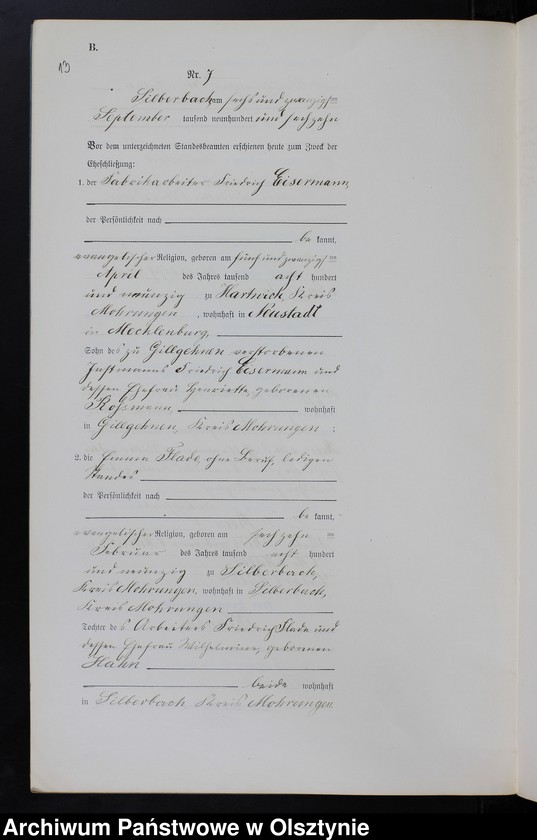 B.
13
Nr. 7
Silberbach am sechs und zwanzigsten
September tausend neunhundert und sechzehn
Vor dem unterzeichneten Standesbeamten erschienen heute zum Zweck der
Eheschließung:
1. der Fabrikarbeiter Friedrich Eisermann,
der Persönlichkeit nach
be kannt,
evangelischer Religion, geboren am fünf und zwanzigsten
April des Jahres tausend acht hundert
und neunzig zu Hartwich, Kreis
Mohrungen, wohnhaft in Neustadt
in Mecklenburg,
Sohn des zu Gillgehnen verstorbenen
Instmanns Friedrich Eisermann und
dessen Ehefrau Henriette, geborenen
Roßmann, wohnhaft
in Gillgehnen, Kreis Mohrungen;
2. die Emma Flade, ohne Beruf, ledigen
Standes
der Persönlichkeit nach
be kannt,
evangelischer Religion, geboren am sechzehnten
Februar des Jahres tausend acht hundert
und neunzig zu Silberbach,
Kreis Mohrungen, wohnhaft in Silberbach,
Kreis Mohrungen
Tochter des Arbeiters Friedrich Flade und
dessen Ehefrau Wilhelmine, geborenen
Hahn
beide wohnhaft
in Silberbach Kreis Mohrungen.
Archiwum Państwowe w Olsztynie